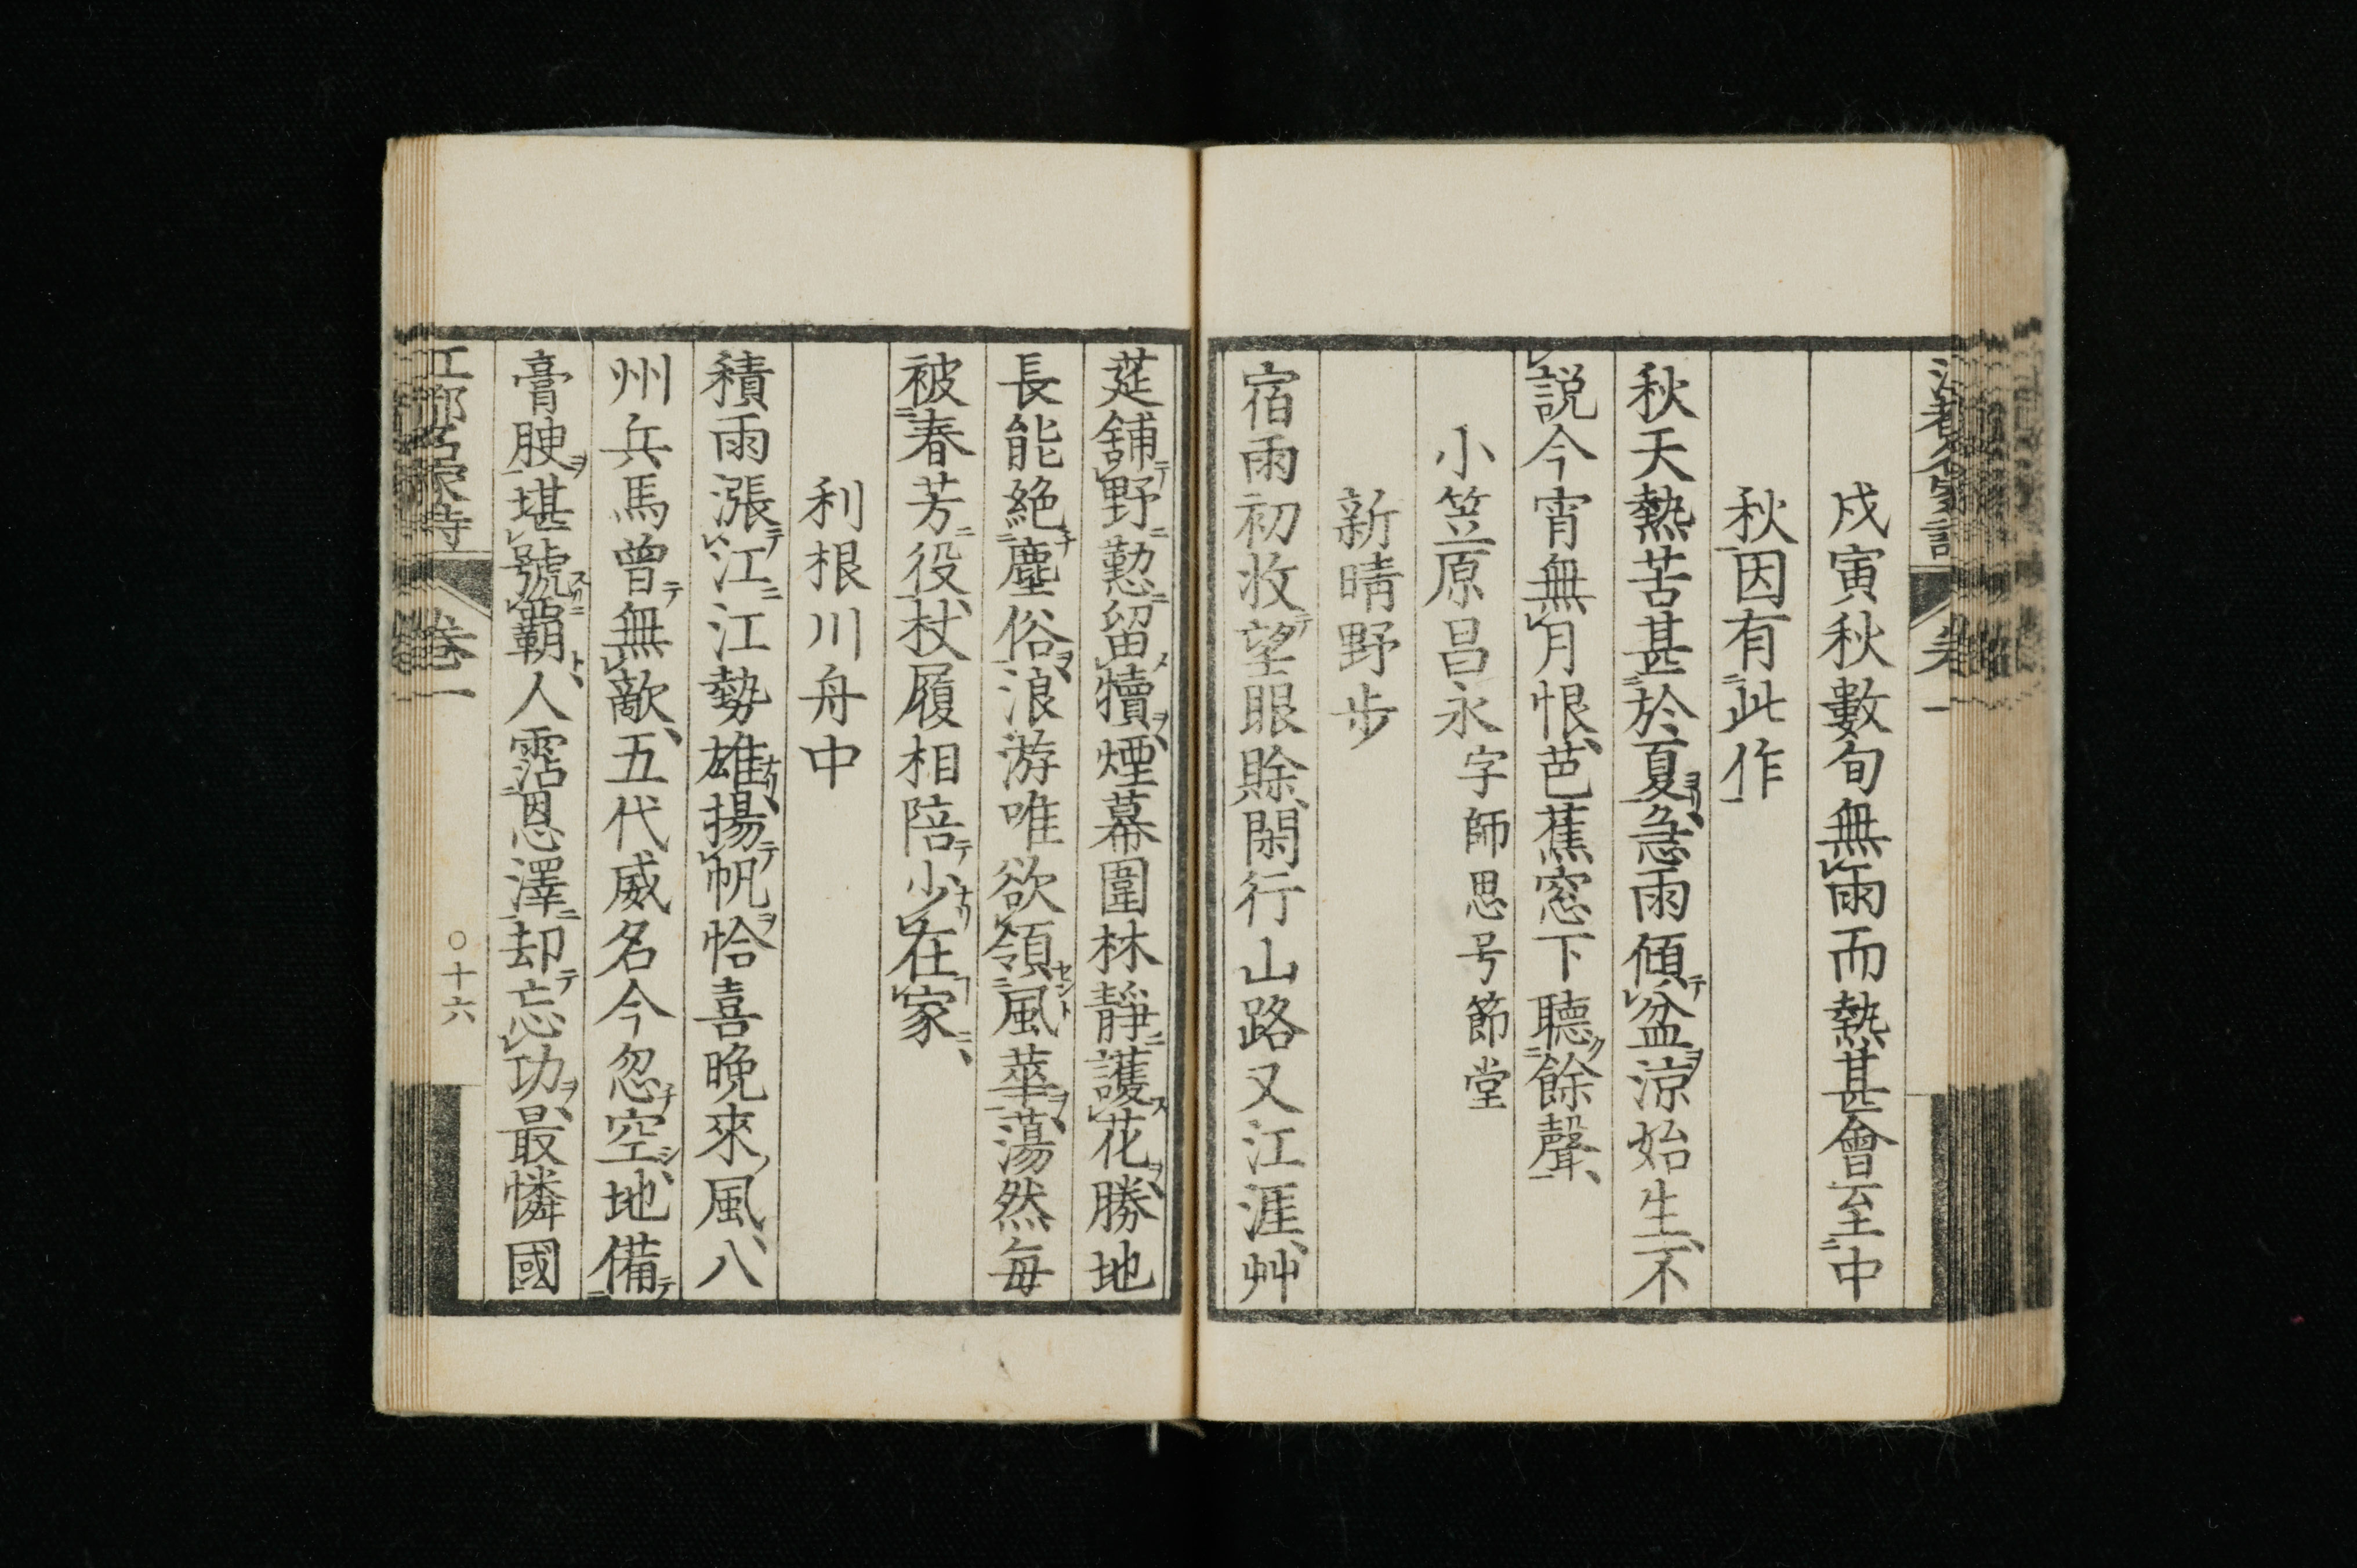 戍寅秋數旬無雨而熱甚會至中
秋因有此作
秋天熱苦甚於夏急雨傾盆涼始生不
説今宵無月恨芭蕉窓下聽餘聲
小笠原昌永字師思号節堂
新晴野步
宿雨初收望眼賖閑行山路又江涯艸
莚舖野懃留犢煙幕圍林靜護花勝地
長能絶塵俗浪游唯欲領風華蕩然每
被春芳役杖履相陪少在家
利根川舟中
積雨漲江江勢雄揚帆恰喜晩來風八
州兵馬曾無敵五代威名今忽空地備
膏腴堪號霸人霑恩澤却忘功最憐國
卷一
○十六